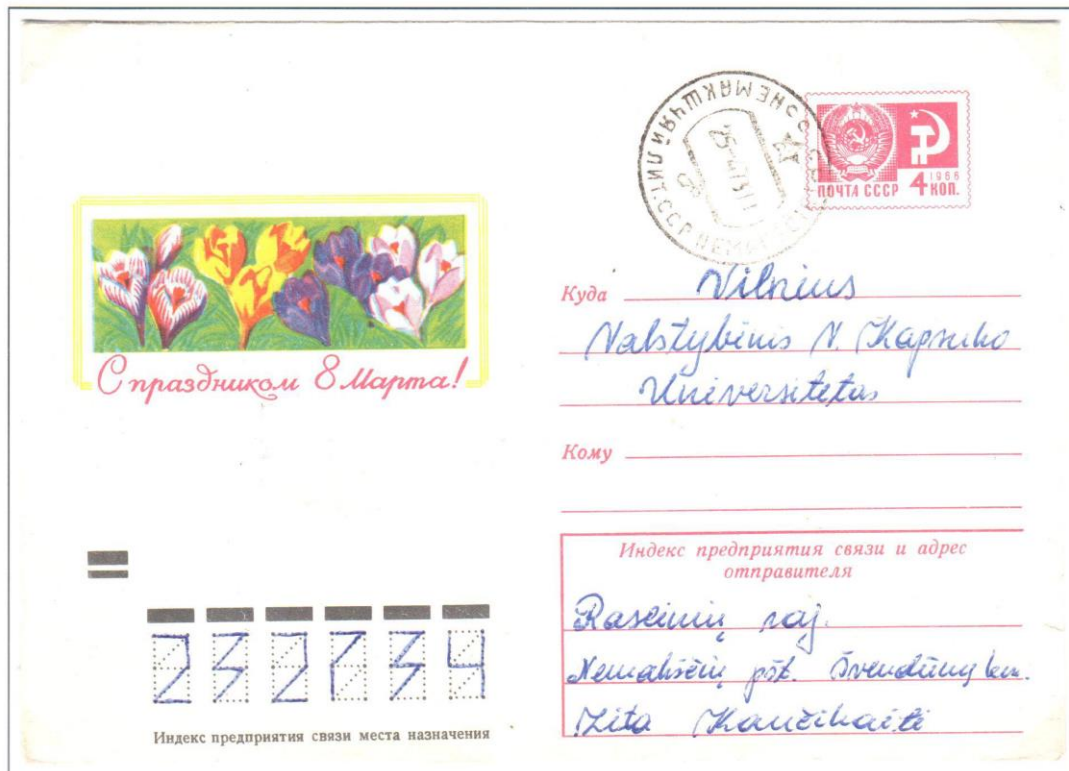 ПОЧТА СССР
1966
4 КОП.
С праздником 8 Марта!
Куда Vilnius
Valstybinis V. Kapsuko
Universitetas
Кому
Индекс предприятия связи и адрес
отправителя
Raseinių raj.
Nemakščių pšt. km.
Zita
232734
Индекс предприятия связи места назначения